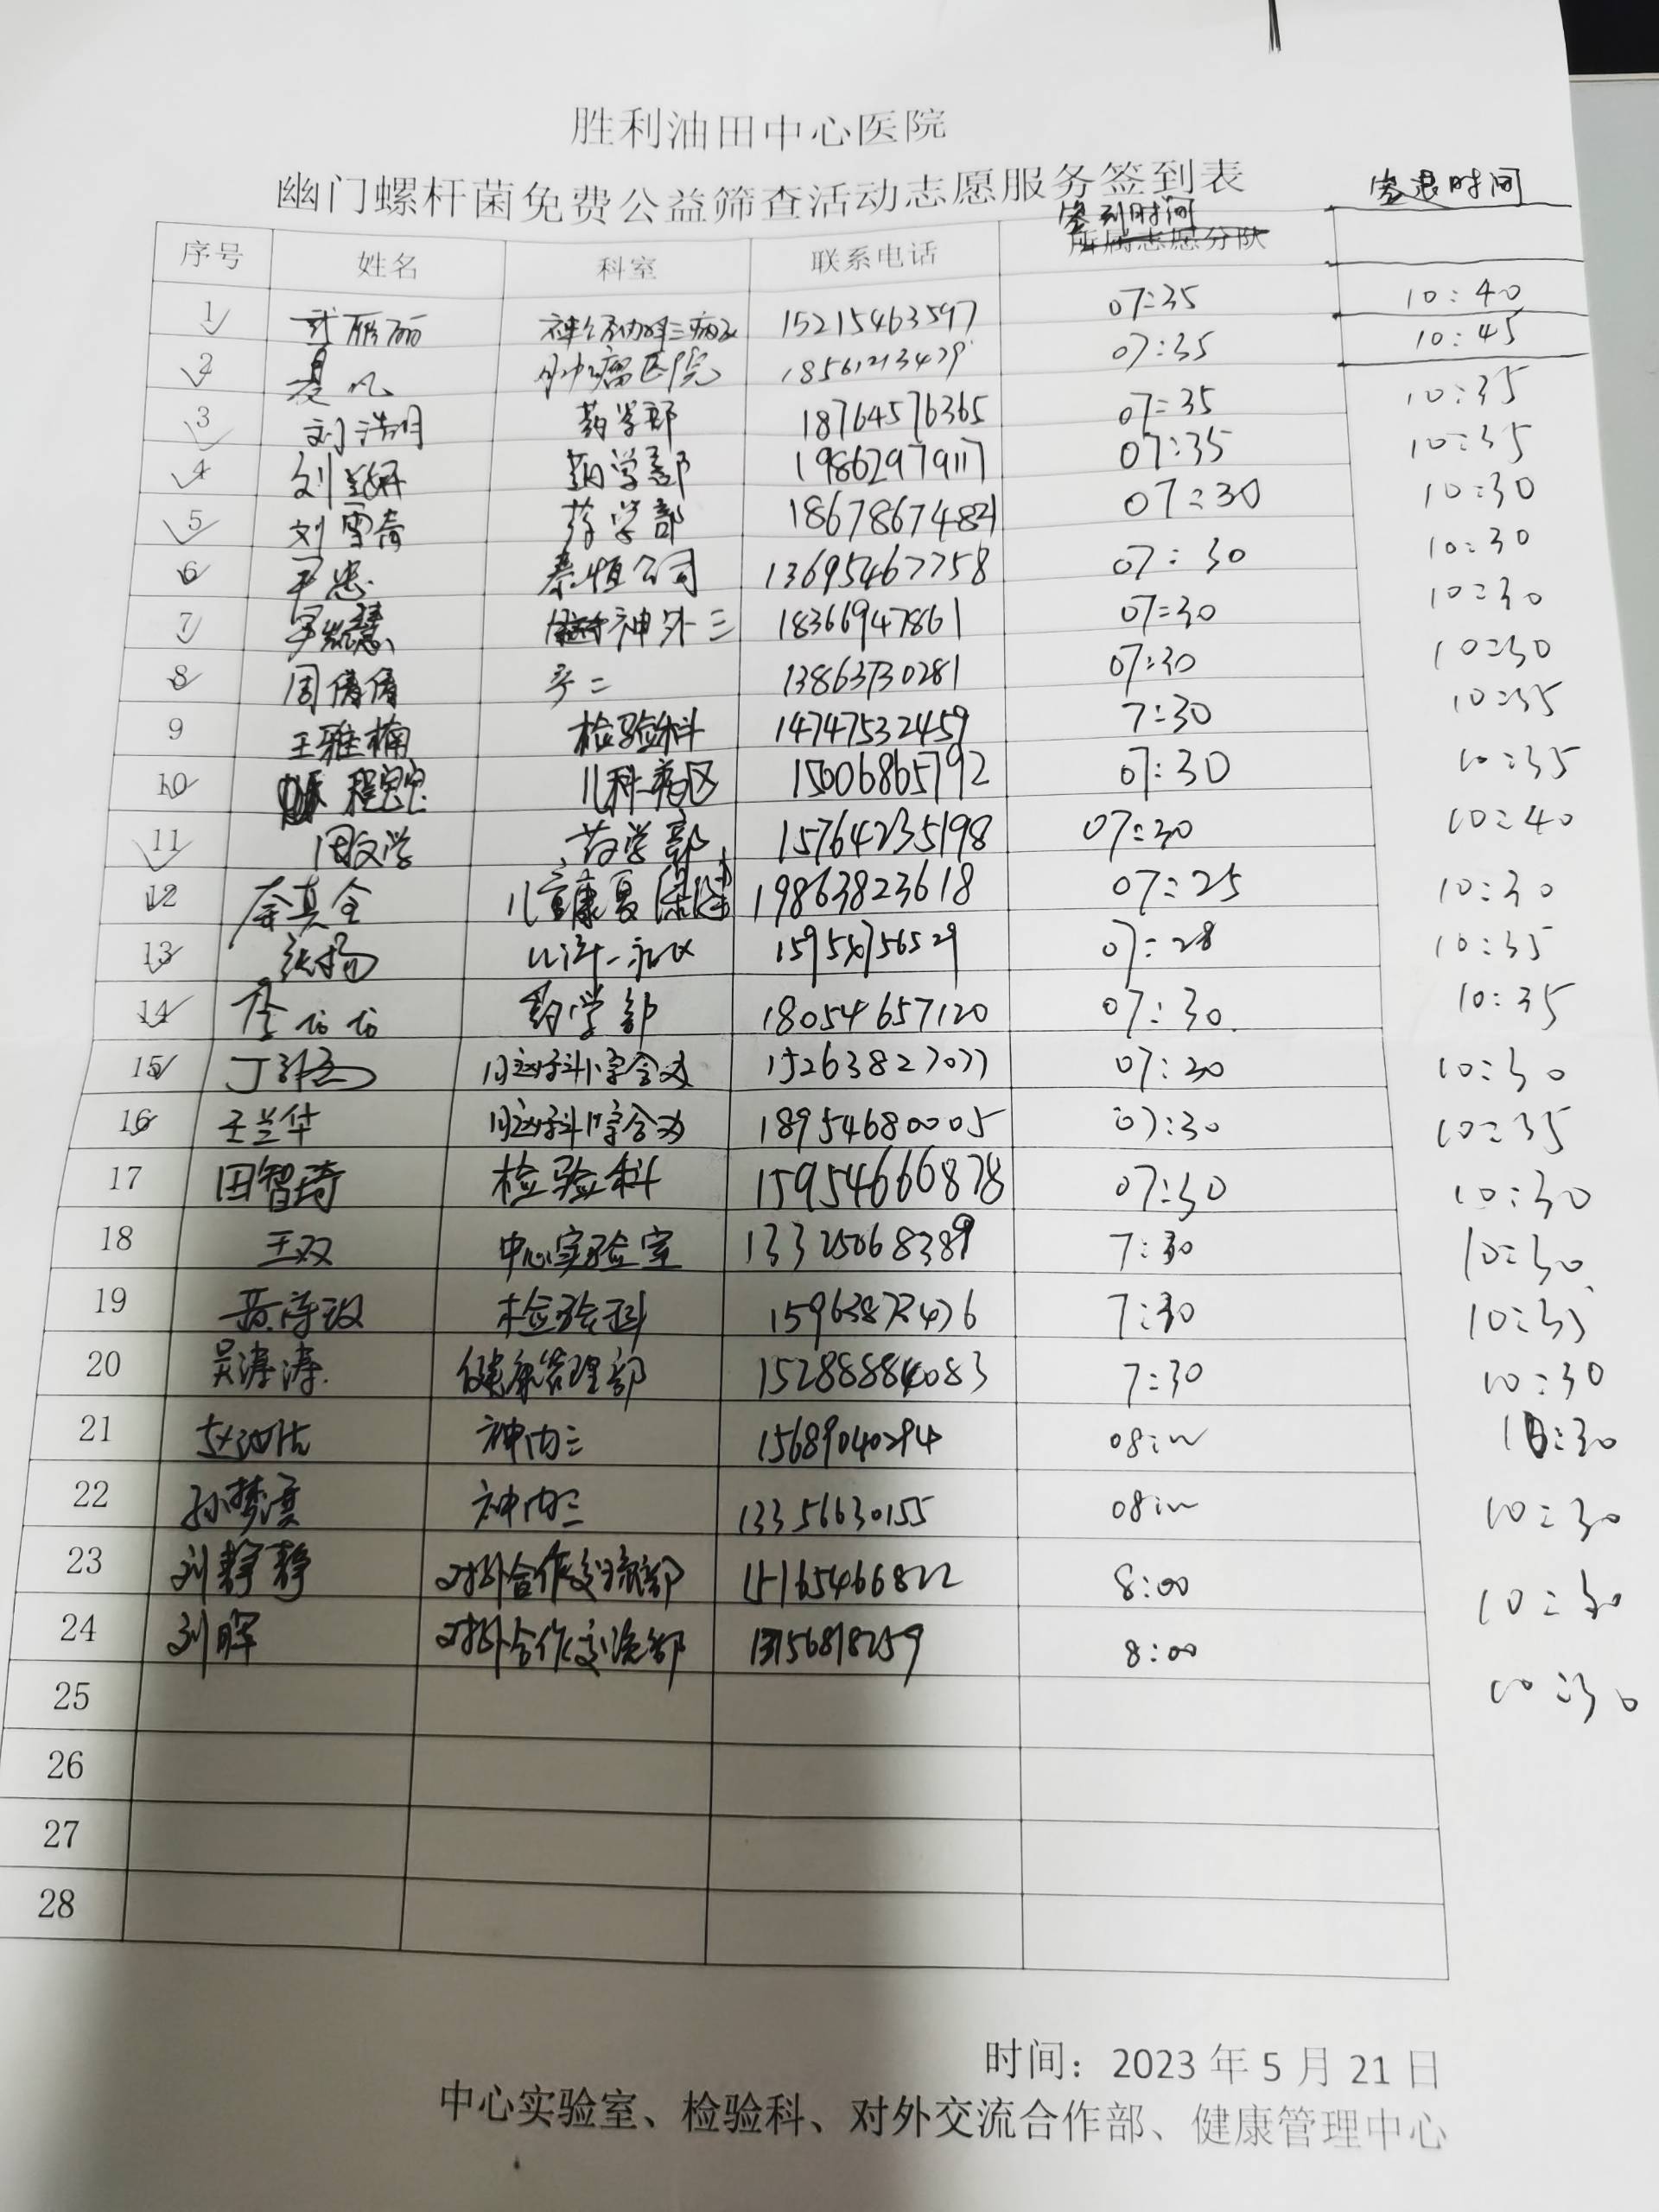 胜利油田中心医院
幽门螺杆菌免费公益筛查活动志愿服务签到表
序号 姓名 科室 联系电话 签到时间 签退时间
1 15215463597 07:35 10:40
2 夏凡 肿瘤医院 18561213479 07:35 10:45
3 刘浩明 药学部 18764576365 07:35 10:35
4 刘 药学部 19862979117 07:35 10:35
5 刘雪奇 药学部 18678674821 07:30 10:30
6 泰恒公司 13695467758 07:30 10:30
7 神外三 18366947861 07:30 10:30
8 周倩倩 产二 13863730281 07:30 10:30
9 王雅楠 检验科 14747532459 7:30 10:35
10 程宽宽 儿科一病区 15006865792 07:30 10:35
11 田文学 药学部 15764235198 07:30 10:40
12 秦真全 儿童康复保健 19863823618 07:25 10:30
13 张杨 07:28 10:35
14 药学部 18054657120 07:30 10:35
15 15263827077 07:30 10:30
16 王兰华 18954680005 07:30 10:35
17 田智琦 检验科 15954666878 07:30 10:30
18 王双 中心实验室 13325068389 7:30 10:30
19 检验科 7:30 10:35
20 吴涛涛 健康管理部 15288884083 7:30 10:30
21 神内三 15689040294 10:30
22 孙梦 神内三 13356630155 10:30
23 刘静静 对外合作交流部 15165466822 8:00 10:30
24 刘晖 对外合作交流部 8:00 10:30
25
26
27
28
时间：2023 年 5 月 21 日
中心实验室、检验科、对外交流合作部、健康管理中心